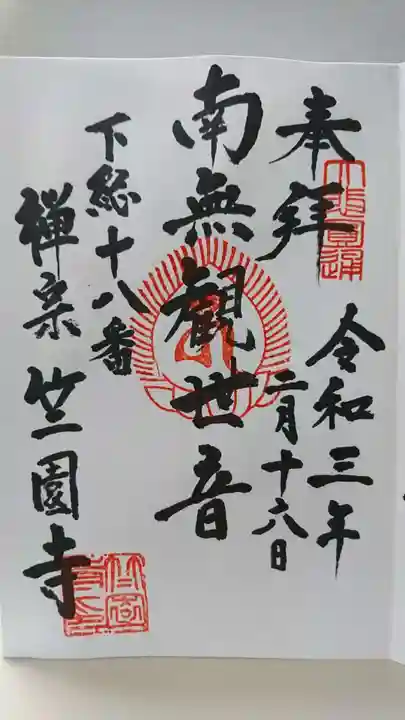 奉拝
令和三年
二月十六日
南無観世音
下総十八番
禅宗 竺園寺